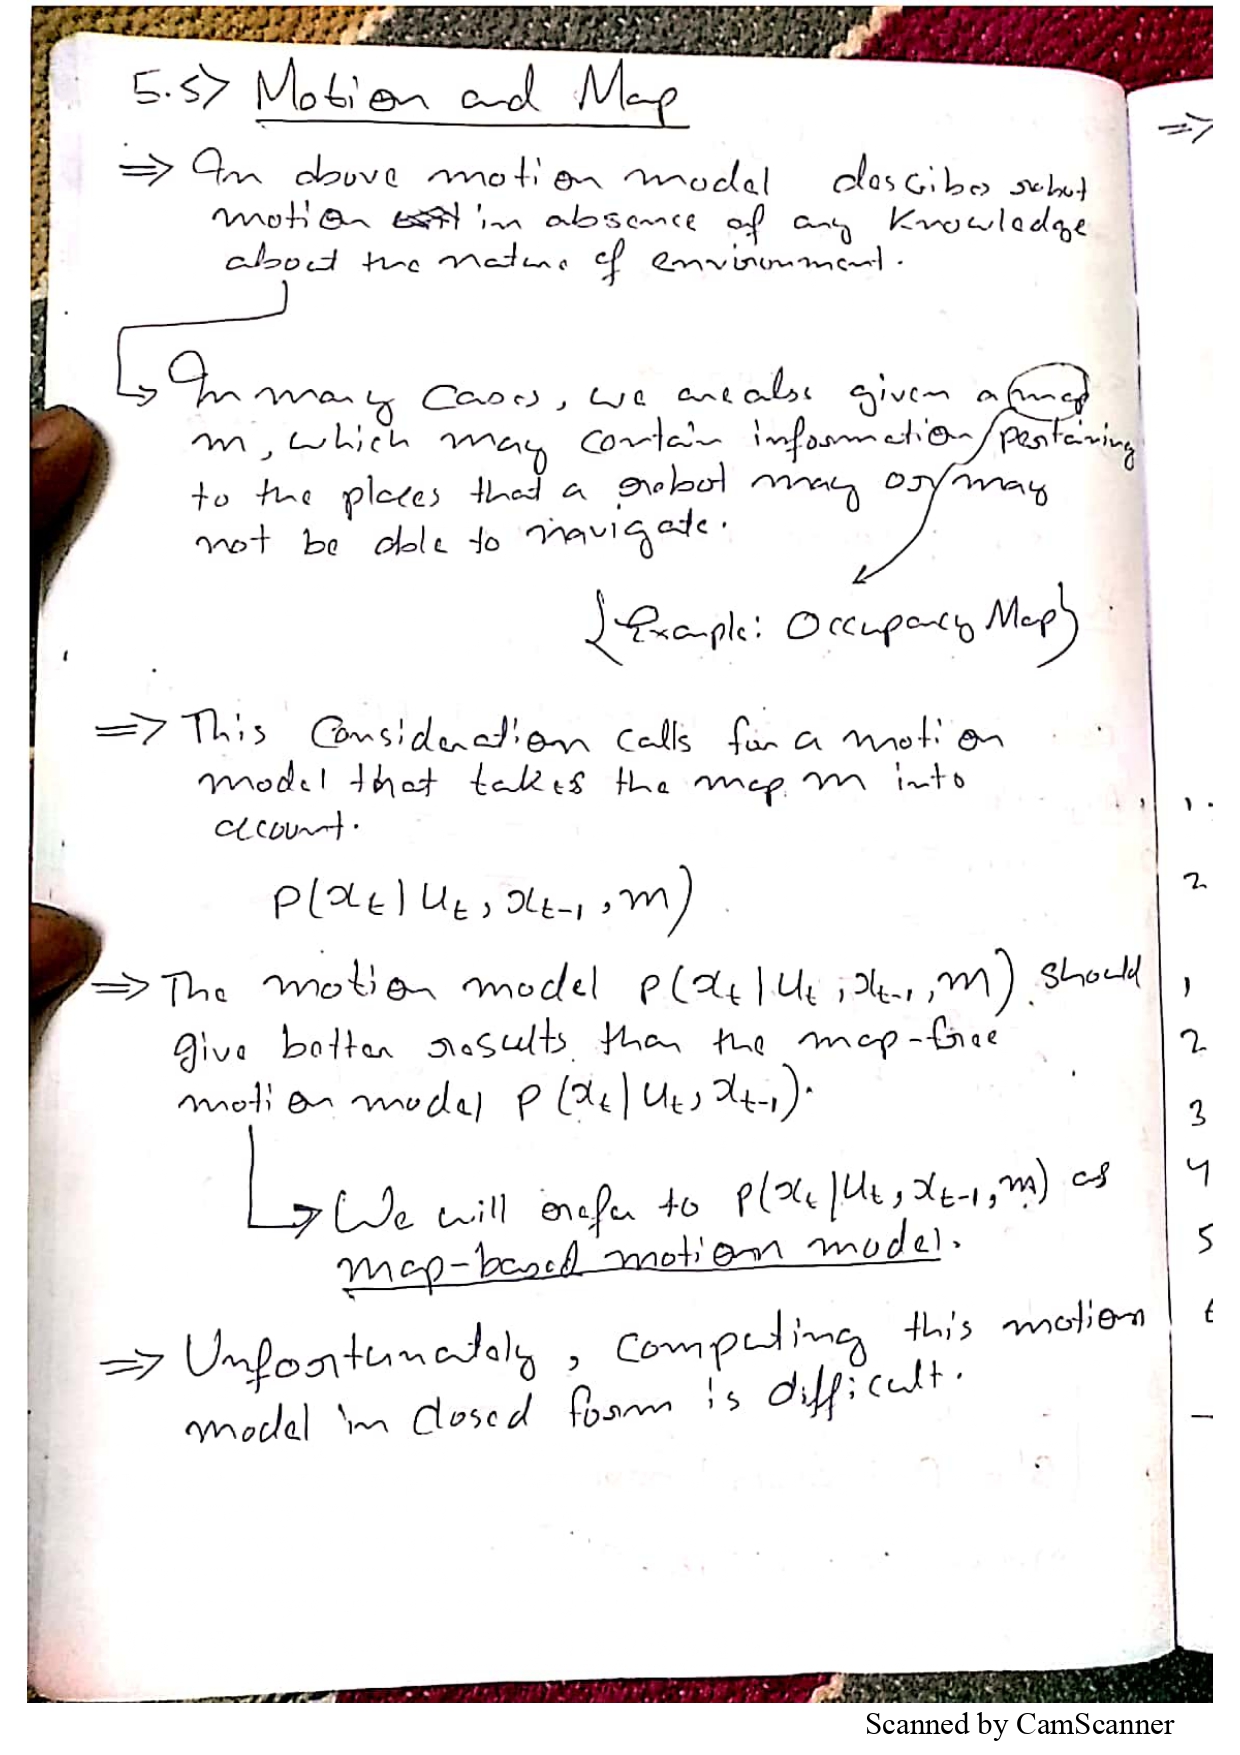 5.5> Motion and Map
=> In above motion model describes robot
motion in absence of any knowledge
about the nature of environment.
In many cases, we are also given a map
m, which may contain information pertaining
to the places that a robot may or may
not be able to navigate.
{Example: Occupancy Map}
=> This Consideration calls for a motion
model that takes the map m into
account.
P(xt | ut, xt-1, m)
=> The motion model P(xt | ut, xt-1, m) should
give better results than the map-free
motion model P(xt | ut, xt-1).
We will refer to P(xt | ut, xt-1, m) as
map-based motion model.
=> Unfortunately, computing this motion
model in closed form is difficult.
=>
1.
2
1
2
3
4
5
Scanned by CamScanner